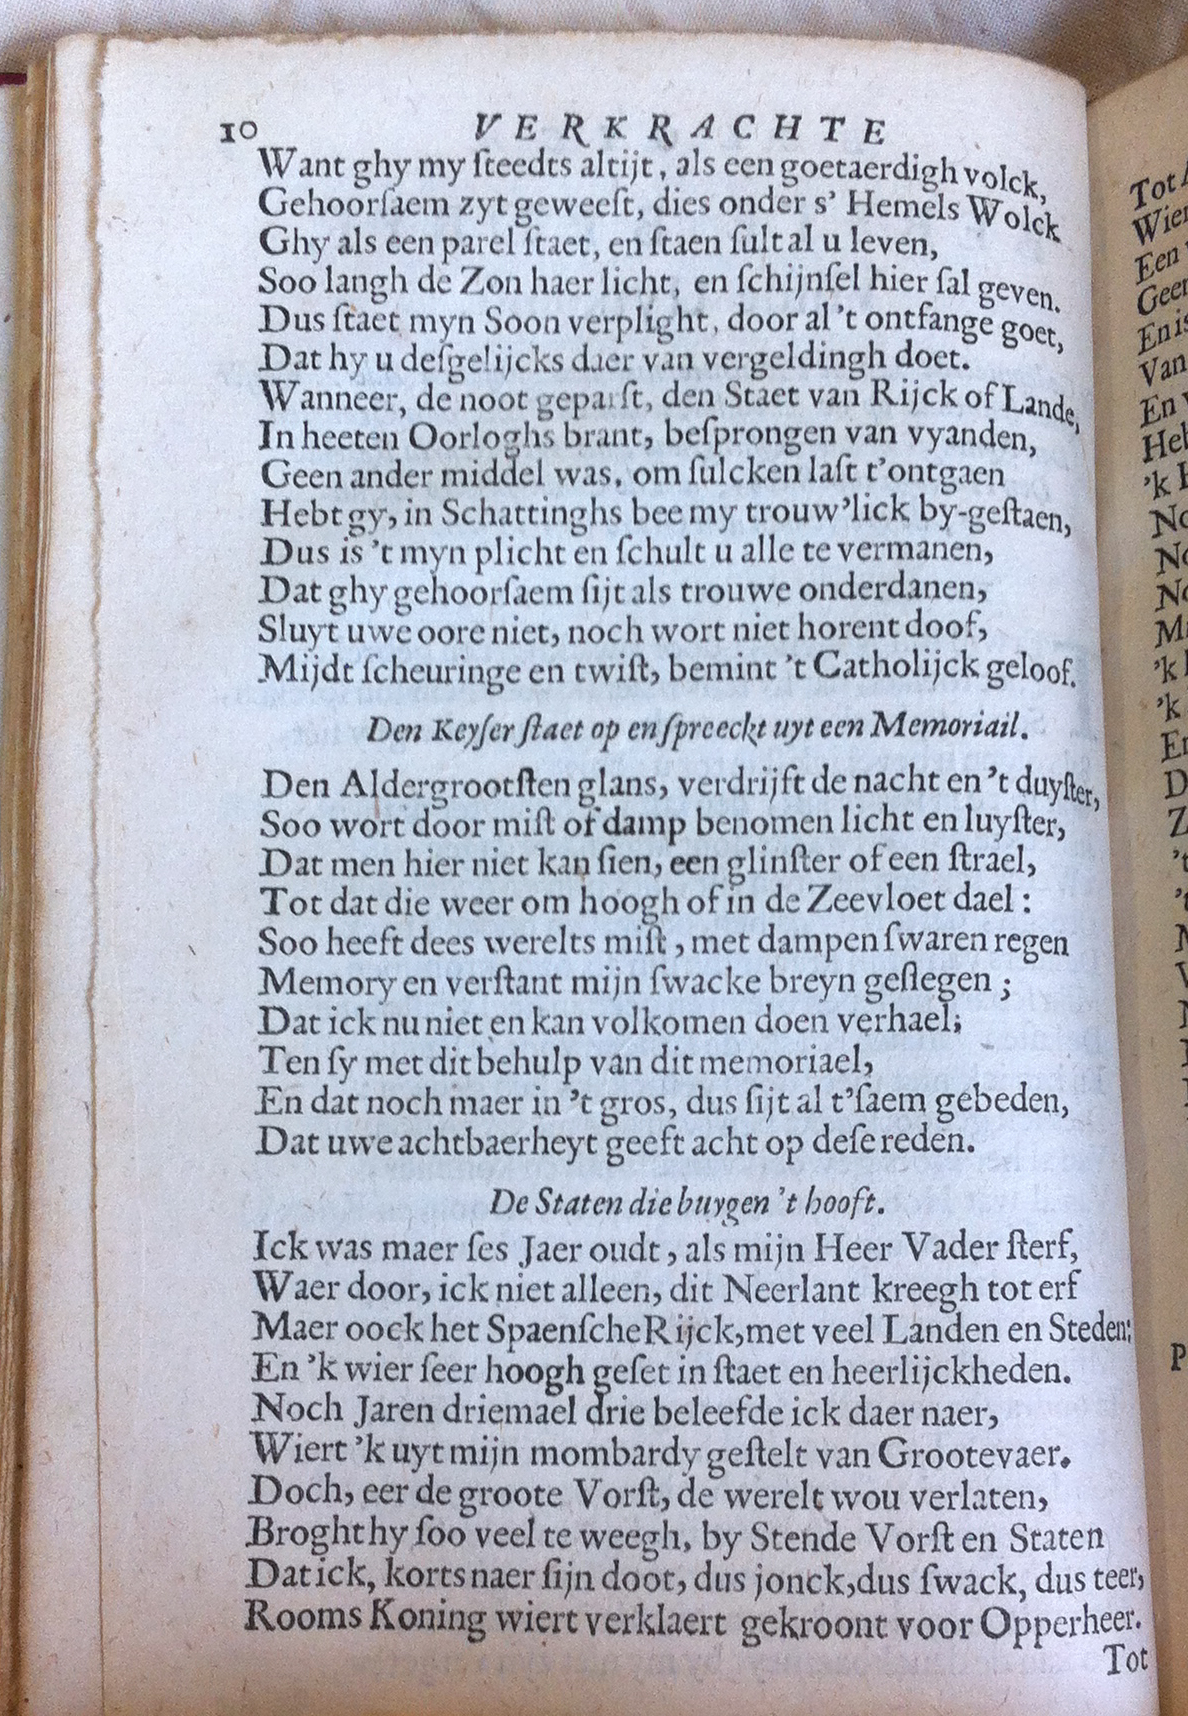 10 VERKRACHTE
Want ghy my ſteedts altijt, als een goetaerdigh volck,
Gehoorſaem zyt geweeſt, dies onder s' Hemels Wolck
Ghy als een parel ſtaet, en ſtaen ſult al u leven,
Soo langh de Zon haer licht, en ſchijnſel hier ſal geven.
Dus ſtaet myn Soon verplight, door al 't ontfange goet,
Dat hy u deſgelijcks daer van vergeldingh doet.
Wanneer, de noot geparſt, den Staet van Rijck of Lande,
In heeten Oorloghs brant, beſprongen van vyanden,
Geen ander middel was, om ſulcken laſt t'ontgaen
Hebt gy, in Schattinghs bee my trouw'lick by-geſtaen,
Dus is 't myn plicht en ſchult u alle te vermanen,
Dat ghy gehoorſaem ſijt als trouwe onderdanen,
Sluyt uwe oore niet, noch wort niet horent doof,
Mijdt ſcheuringe en twiſt, bemint 't Catholijck geloof.
Den Keyſer ſtaet op en ſpreeckt uyt een Memoriail.
Den Aldergrootſten glans, verdrijft de nacht en 't duyſter,
Soo wort door miſt of damp benomen licht en luyſter,
Dat men hier niet kan ſien, een glinſter of een ſtrael,
Tot dat die weer om hoogh of in de Zeevloet dael:
Soo heeft dees werelts miſt, met dampen ſwaren regen
Memory en verſtant mijn ſwacke breyn geſlegen;
Dat ick nu niet en kan volkomen doen verhael;
Ten ſy met dit behulp van dit memoriael,
En dat noch maer in 't gros, dus ſijt al t'ſaem gebeden,
Dat uwe achtbaerheyt geeft acht op deſe reden.
De Staten die buygen 't hooft.
Ick was maer ſes Jaer oudt, als mijn Heer Vader ſterf,
Waer door, ick niet alleen, dit Neerlant kreegh tot erf
Maer oock het Spaenſche Rijck, met veel Landen en Steden;
En 'k wier ſeer hoogh geſet in ſtaet en heerlijckheden.
Noch Jaren driemael drie beleefde ick daer naer,
Wiert 'k uyt mijn mombardy geſtelt van Grootevaer.
Doch, eer de groote Vorſt, de werelt wou verlaten,
Broght hy ſoo veel te weegh, by Stende Vorſt en Staten
Dat ick, korts naer ſijn doot, dus jonck, dus ſwack, dus teer,
Rooms Koning wiert verklaert gekroont voor Opperheer.
Tot